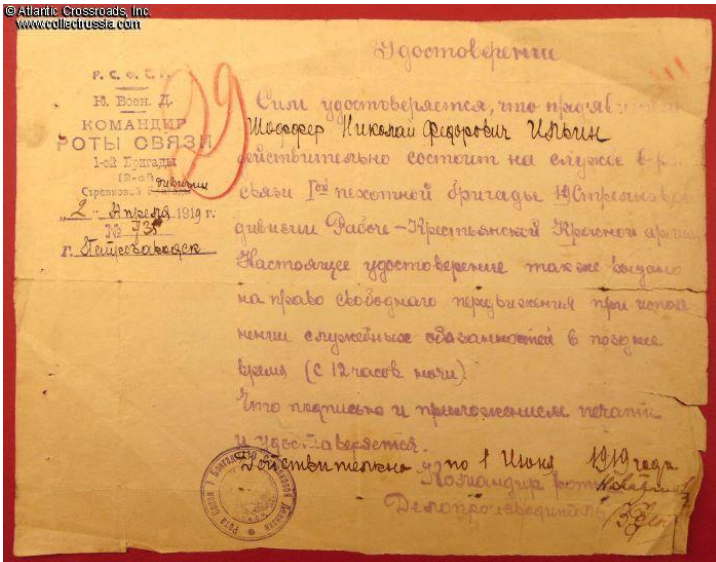 © Atlantic Crossroads, Inc.
www.collectrussia.com
Удостоверение
Р.С.Ф.С.Р.
Ю. Воен. Д.
КОМАНДИР
РОТЫ СВЯЗИ
1-ой Бригады
Стрелковой дивизии
2 - Апреля 1919 г.
№ 735
г. Петрозаводск
29
Сим удостоверяется, что предявитель
Шоффер Николай Федорович Ильин
действительно состоит на службе в р
связи 1ой пехотной бригады 19 Стрелковой
дивизии Рабоче-Крестьянской Красной армии
Настоящее удостоверение также выдано
на право свободнаго передвижения при испол
нении служебных обязанностей в позднее
время (с 12 часов ночи).
Что подписью и приложением печати
и удостоверяется.
Действительно по 1 Июня 1919 года
Командир роты
Делопроизводитель
Рота Связи 1 Бригады Стрелковой Дивизии